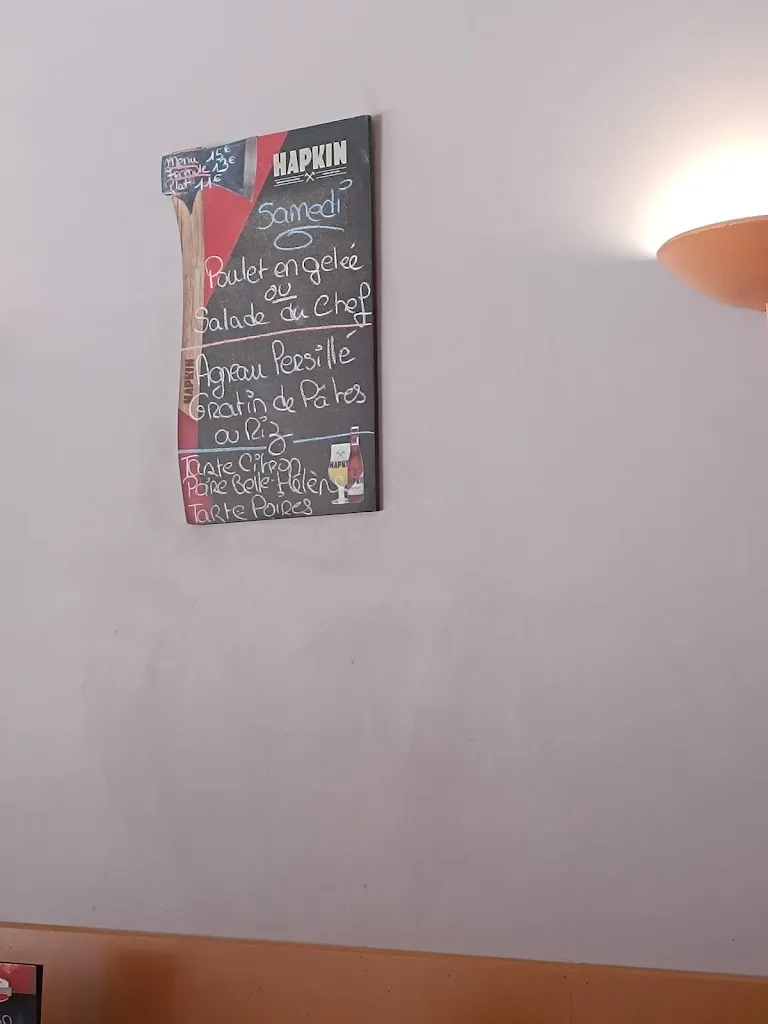 Menu 15€
Formule 13€
Plat 11€
HAPKIN
Samedi
Poulet en gelée
ou
Salade du Chef
Agneau Persillé
Gratin de Pâtes
ou Riz
Tarte Citron
Poire Belle-Hélène
Tarte Poires
HAPKIN
HAPKIN